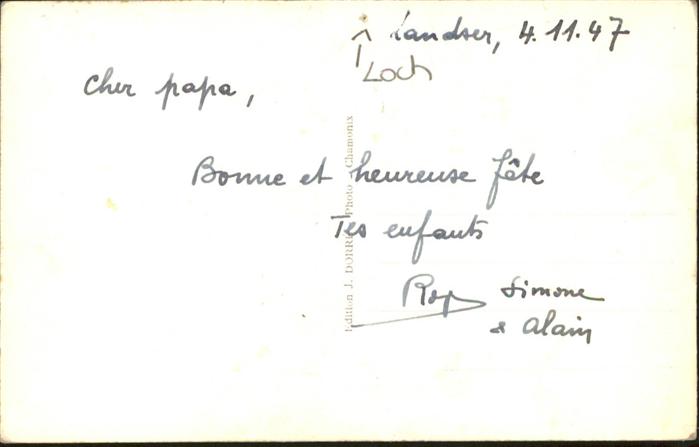 Landser, 4.11.47
Loch
Cher papa,
Bonne et heureuse fête
Tes enfants
Simone
& Alain
Edition J. DORREY Photo Chamonix